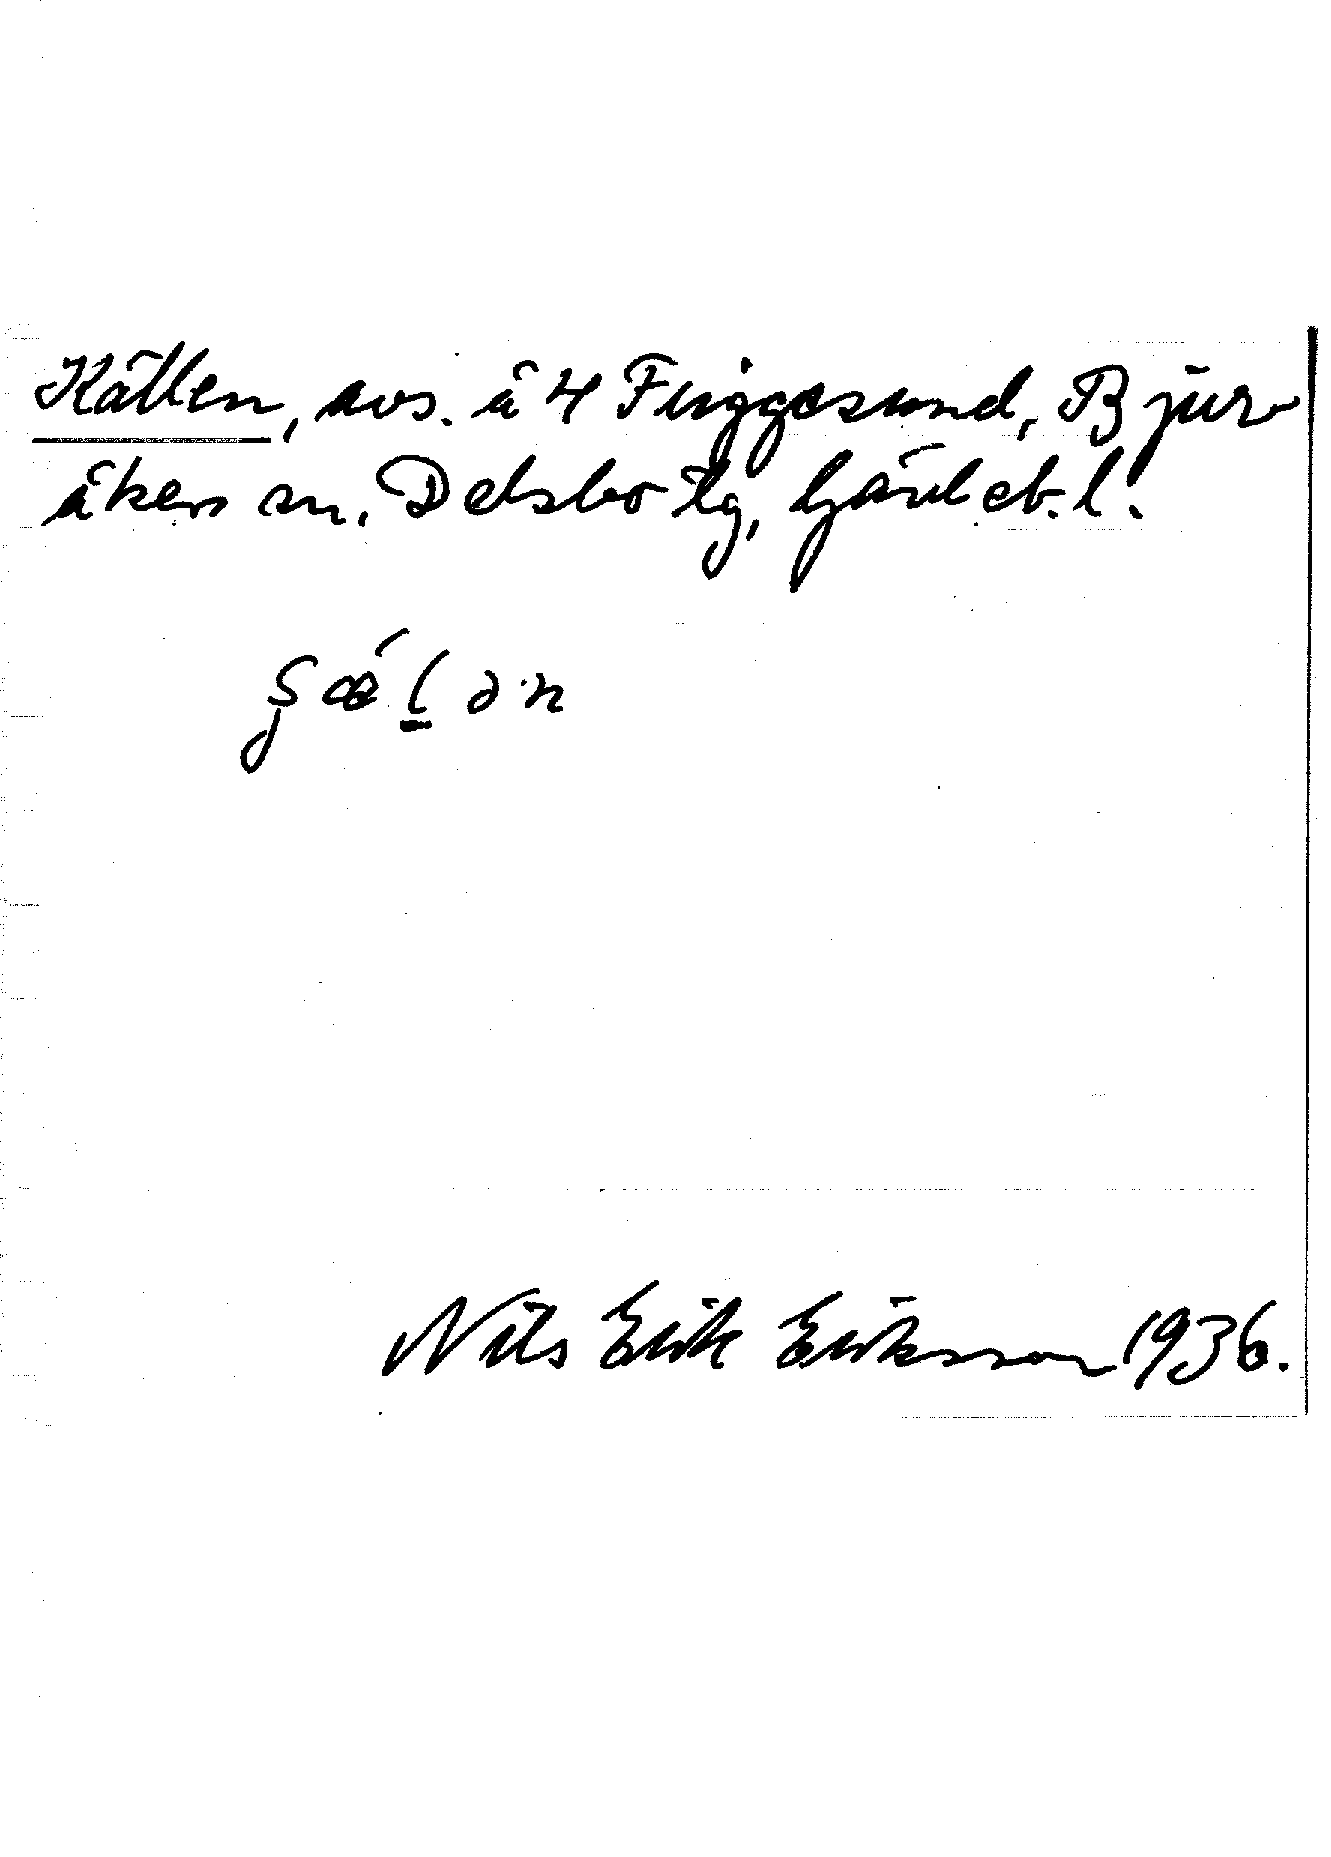 Källen, avs. å 4 Friggesund, Bjur-
åkers sn. Delsbo tg, Gävleb. l.
Nils Erik Eriksson 1936.